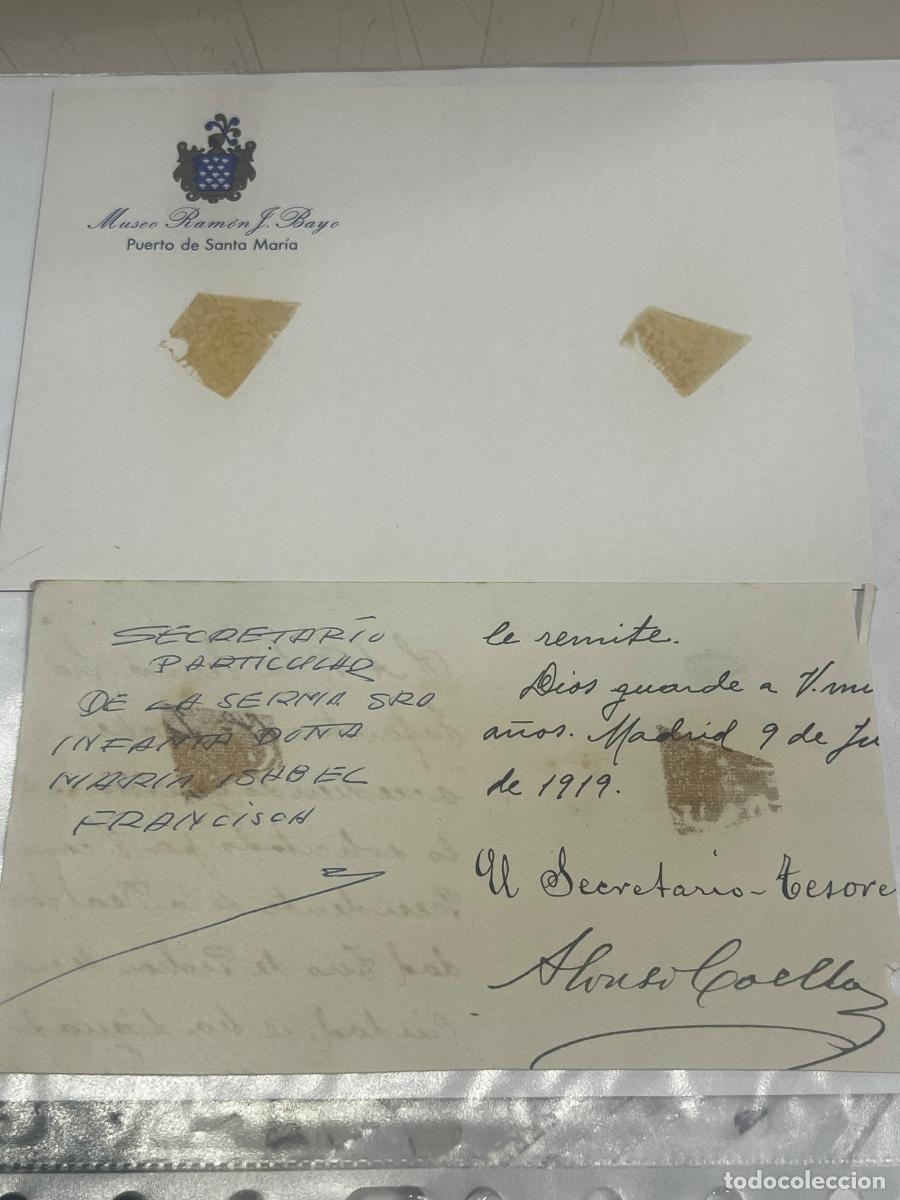 Museo Ramón J. Bayo
Puerto de Santa María
SECRETARIO
PARTICULAR
DE LA SERMA. SRA
INFANTA DOÑA
MARIA ISABEL
FRANCISCA
le remite.
Dios guarde a V. mu
años. Madrid 9 de Ju
de 1919.
El Secretario-Tesore
Alonso Coello
todocoleccion